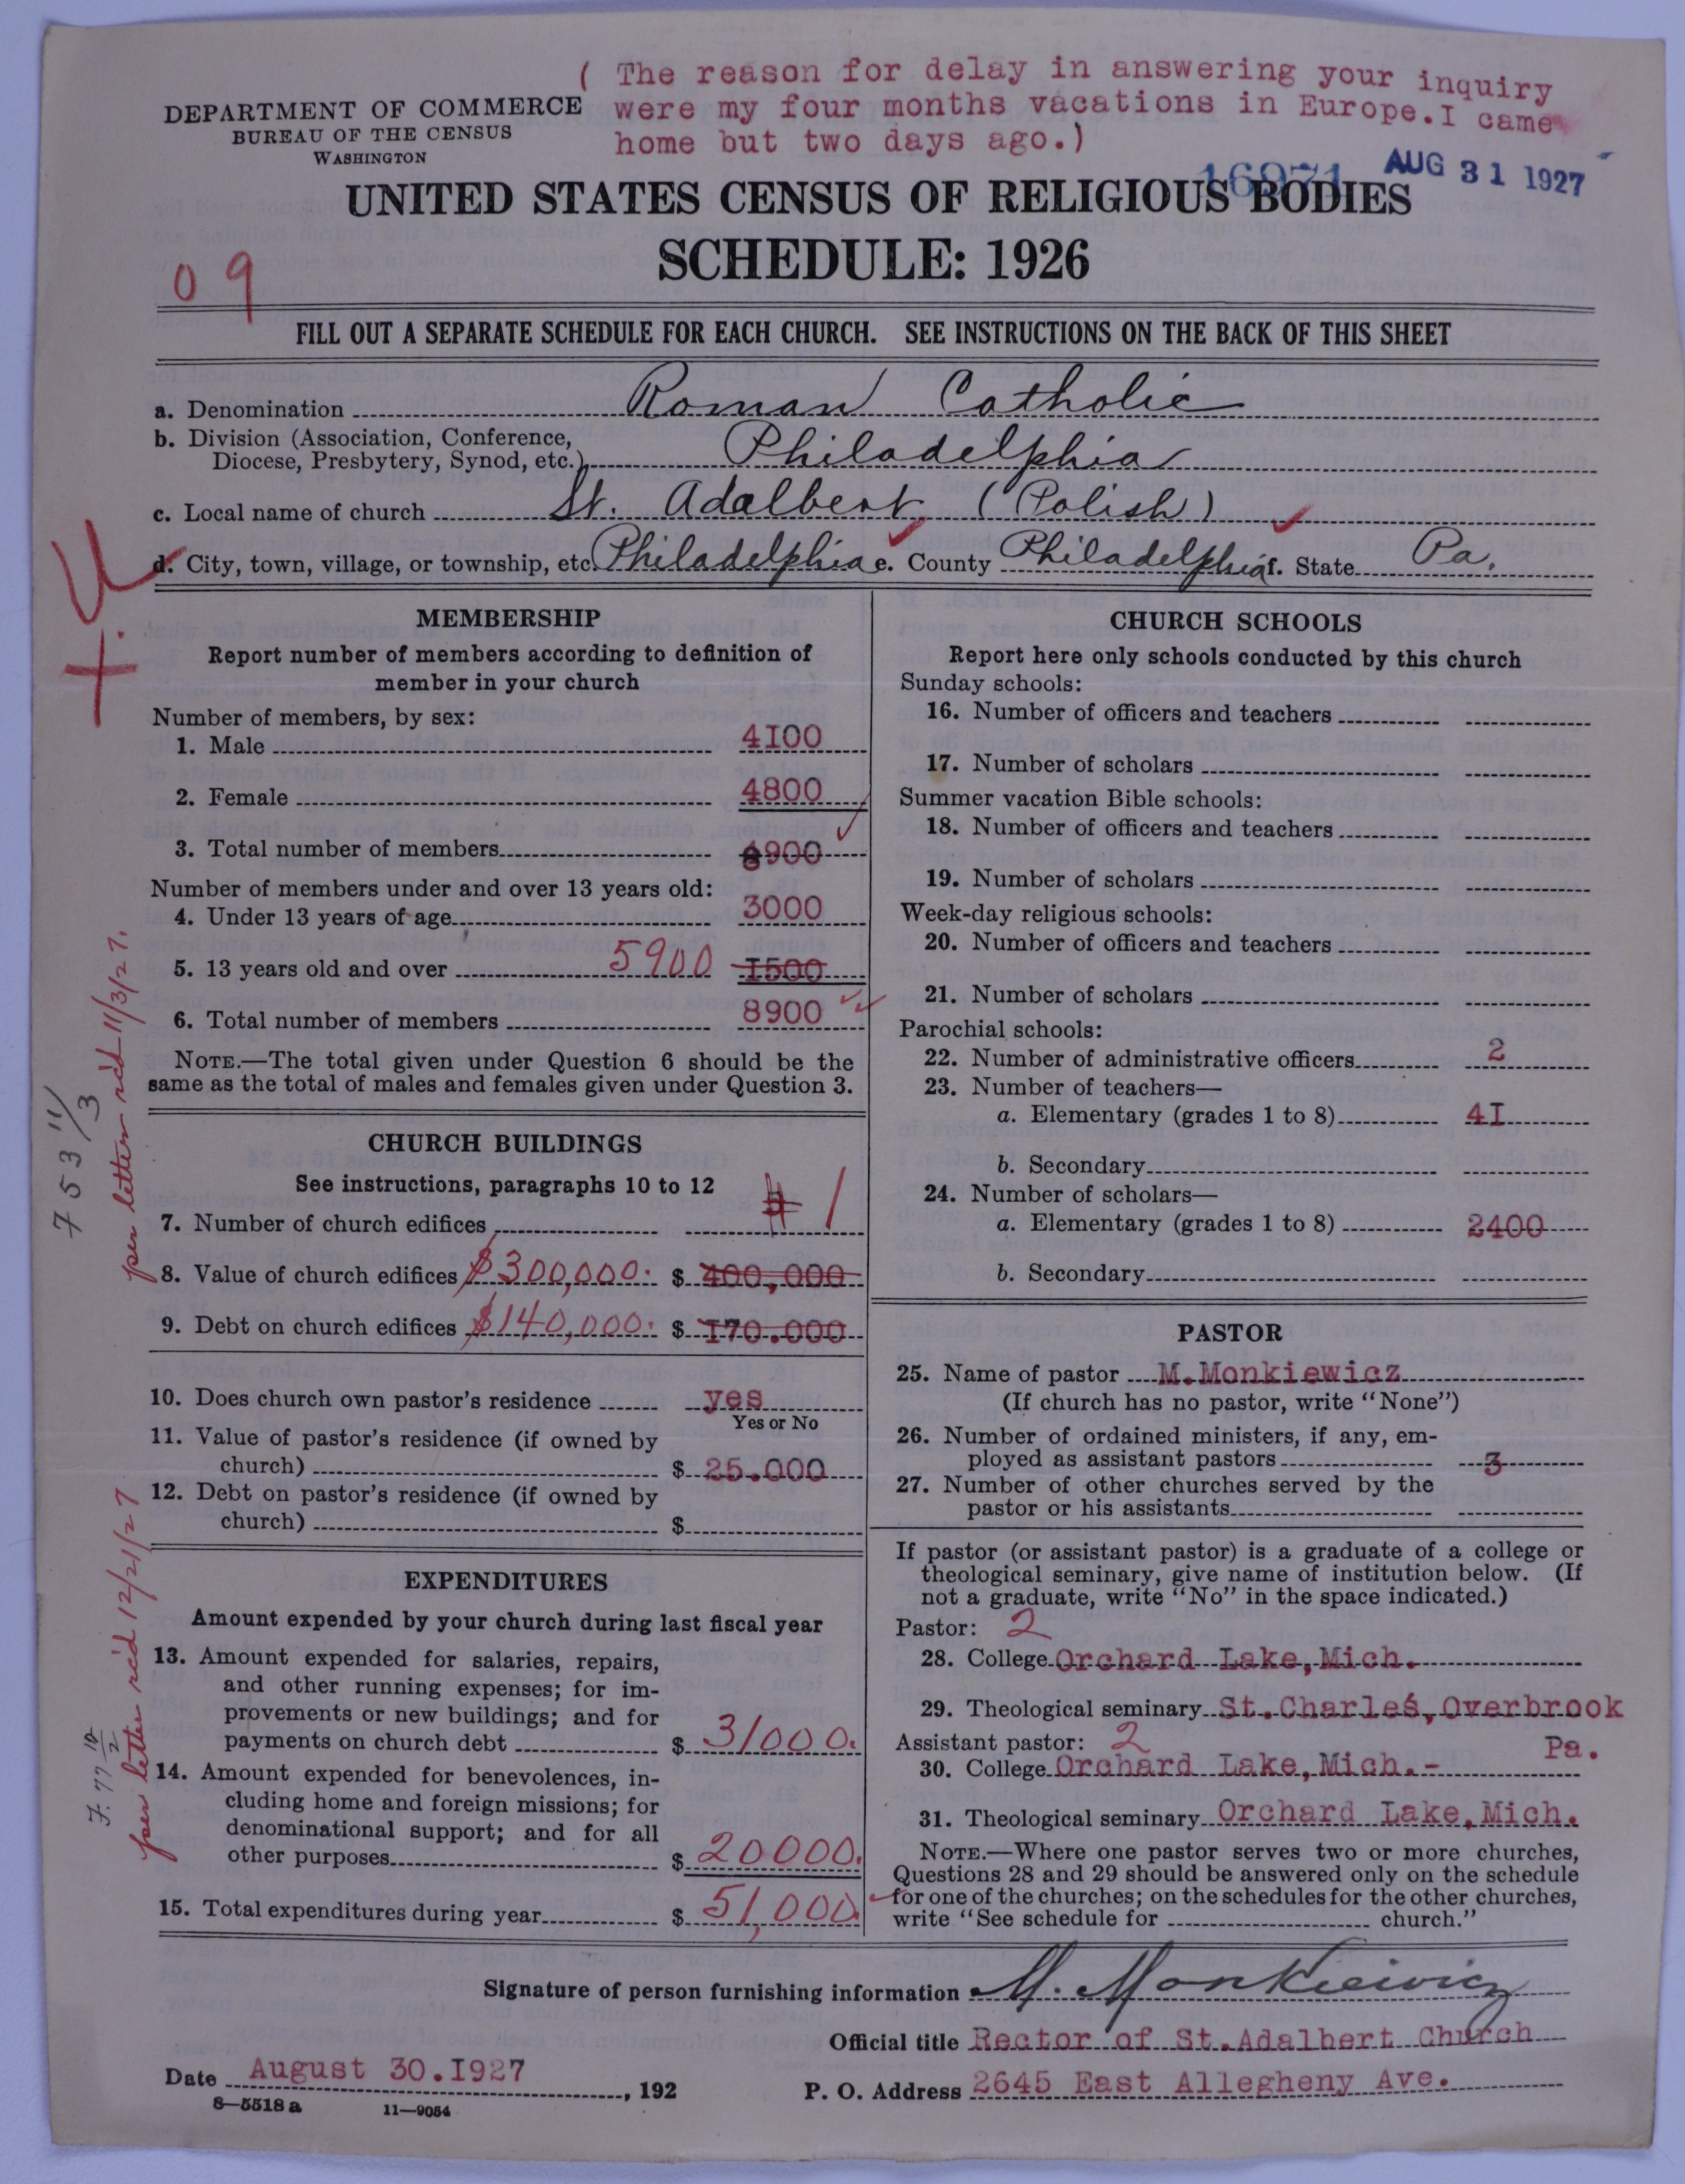 ( The reason for delay in answering your inquiry
were my four months vacations in Europe.I came
home but two days ago.)
DEPARTMENT OF COMMERCE
BUREAU OF THE CENSUS
WASHINGTON
16971 AUG 31 1927
UNITED STATES CENSUS OF RELIGIOUS BODIES
SCHEDULE: 1926
09
FILL OUT A SEPARATE SCHEDULE FOR EACH CHURCH. SEE INSTRUCTIONS ON THE BACK OF THIS SHEET
a. Denomination Roman Catholic
b. Division (Association, Conference,
Diocese, Presbytery, Synod, etc.) Philadelphia
c. Local name of church St. Adalbert (Polish)
d. City, town, village, or township, etc. Philadelphia e. County Philadelphia f. State Pa.
MEMBERSHIP
Report number of members according to definition of
member in your church
Number of members, by sex:
1. Male 4I00
2. Female 4800
3. Total number of members 8900
Number of members under and over 13 years old:
4. Under 13 years of age 3000
5. 13 years old and over 5900 I500
6. Total number of members 8900
NOTE.—The total given under Question 6 should be the
same as the total of males and females given under Question 3.
CHURCH BUILDINGS
See instructions, paragraphs 10 to 12
7. Number of church edifices 1
8. Value of church edifices $300,000. $ 400,000
9. Debt on church edifices $140,000. $ I70.000
10. Does church own pastor's residence yes
Yes or No
11. Value of pastor's residence (if owned by
church) $ 25.000
12. Debt on pastor's residence (if owned by
church) $
EXPENDITURES
Amount expended by your church during last fiscal year
13. Amount expended for salaries, repairs,
and other running expenses; for im-
provements or new buildings; and for
payments on church debt $ 31000.
14. Amount expended for benevolences, in-
cluding home and foreign missions; for
denominational support; and for all
other purposes $ 20000.
15. Total expenditures during year $ 51,000.
CHURCH SCHOOLS
Report here only schools conducted by this church
Sunday schools:
16. Number of officers and teachers
17. Number of scholars
Summer vacation Bible schools:
18. Number of officers and teachers
19. Number of scholars
Week-day religious schools:
20. Number of officers and teachers
21. Number of scholars
Parochial schools:
22. Number of administrative officers 2
23. Number of teachers—
a. Elementary (grades 1 to 8) 4I
b. Secondary
24. Number of scholars—
a. Elementary (grades 1 to 8) 2400
b. Secondary
PASTOR
25. Name of pastor M.Monkiewicz
(If church has no pastor, write "None")
26. Number of ordained ministers, if any, em-
ployed as assistant pastors 3
27. Number of other churches served by the
pastor or his assistants
If pastor (or assistant pastor) is a graduate of a college or
theological seminary, give name of institution below. (If
not a graduate, write "No" in the space indicated.)
Pastor: 2
28. College Orchard Lake,Mich.
29. Theological seminary St.Charles, Overbrook
Pa.
Assistant pastor: 2
30. College Orchard Lake,Mich.-
31. Theological seminary Orchard Lake,Mich.
NOTE.—Where one pastor serves two or more churches,
Questions 28 and 29 should be answered only on the schedule
for one of the churches; on the schedules for the other churches,
write "See schedule for church."
Signature of person furnishing information M. Monkiewicz
Official title Rector of St.Adalbert Church
Date August 30.I927, 192
P. O. Address 2645 East Allegheny Ave.
8—5518 a 11—9054
per letter rec'd 11/3/27.
7 53 11/3
per letter rec'd 12/21/27